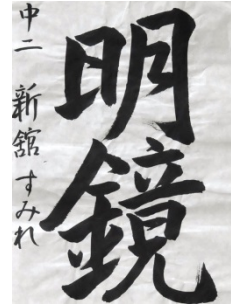 明鏡
中二 新舘 すみれ